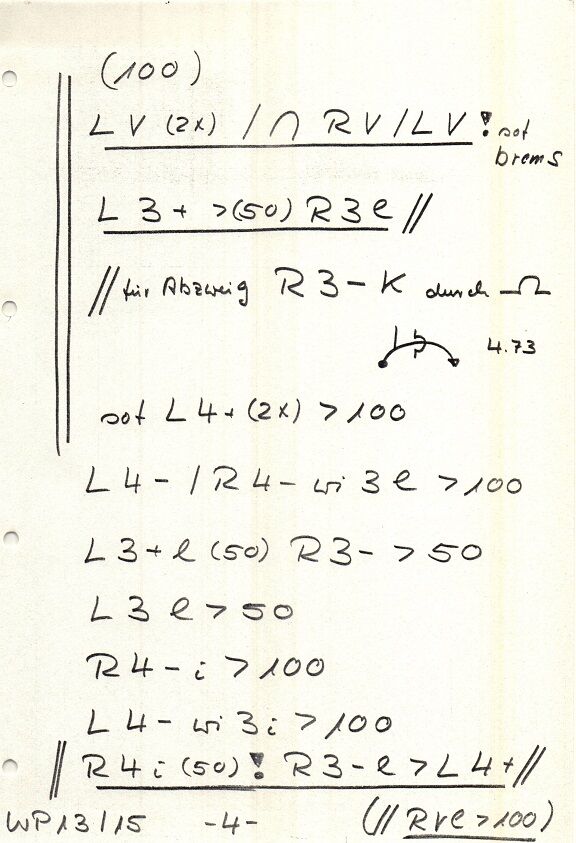 (100)
LV (2x) / ∩ RV / LV ! sof
brems
L3+ >(50) R3e //
// für Abzweig R3-K durch
4.73
sof L4+ (2x) >100
L4- / R4- wi 3e >100
L3+e (50) R3- >50
L3e >50
R4-i >100
L4- wi 3i >100
R4i (50) ! R3-e > L4+ //
WP13/15 -4- (// RVe >100)